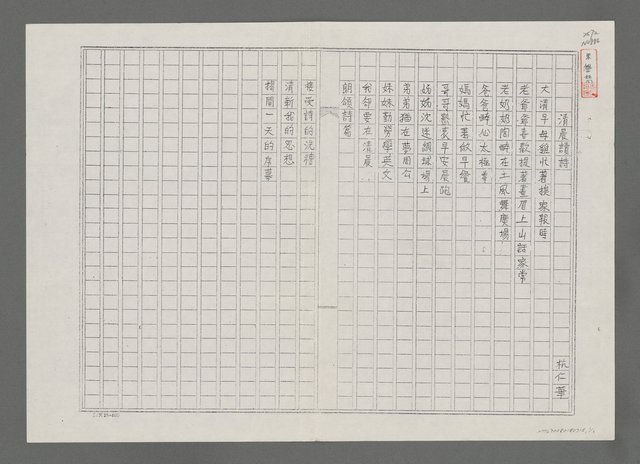 清晨讀詩
林仁華
大清早母雞忙著挨家報時
老爺爺喜歡提著畫眉上山話家常
老奶奶陶醉在土風舞廣場
爸爸醉心太極拳
媽媽忙著做早餐
哥哥熱衷早安晨跑
姊姊沈迷網球場上
弟弟猶在夢周公
妹妹勤勞學英文
我卻要在清晨
朗頌詩篇
接受詩的洗禮
清新我的思想
揭開一天的序幕